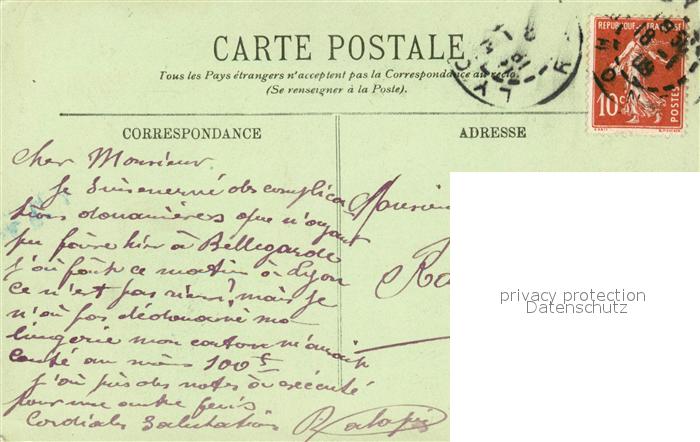 CARTE POSTALE
Tous les Pays étrangers n'acceptent pas la Correspondance au recto.
(Se renseigner à la Poste).
REPUBLIQUE FRANÇAISE
10c
POSTES
CORRESPONDANCE
ADRESSE
Cher Monsieur
Je suis enervé des complica
tions douanières que n'ayant
pu faire hier à Bellegarde
j'ai fait ce matin à Lyon
ce n'est pas rien, mais je
n'ai pas dédouané ma
lingerie mon carton m'aurait
couté au moins 100 f
j'ai pris des notes à
pour une autre fois
Cordiales Salutations
Monsieur
privacy protection
Datenschutz